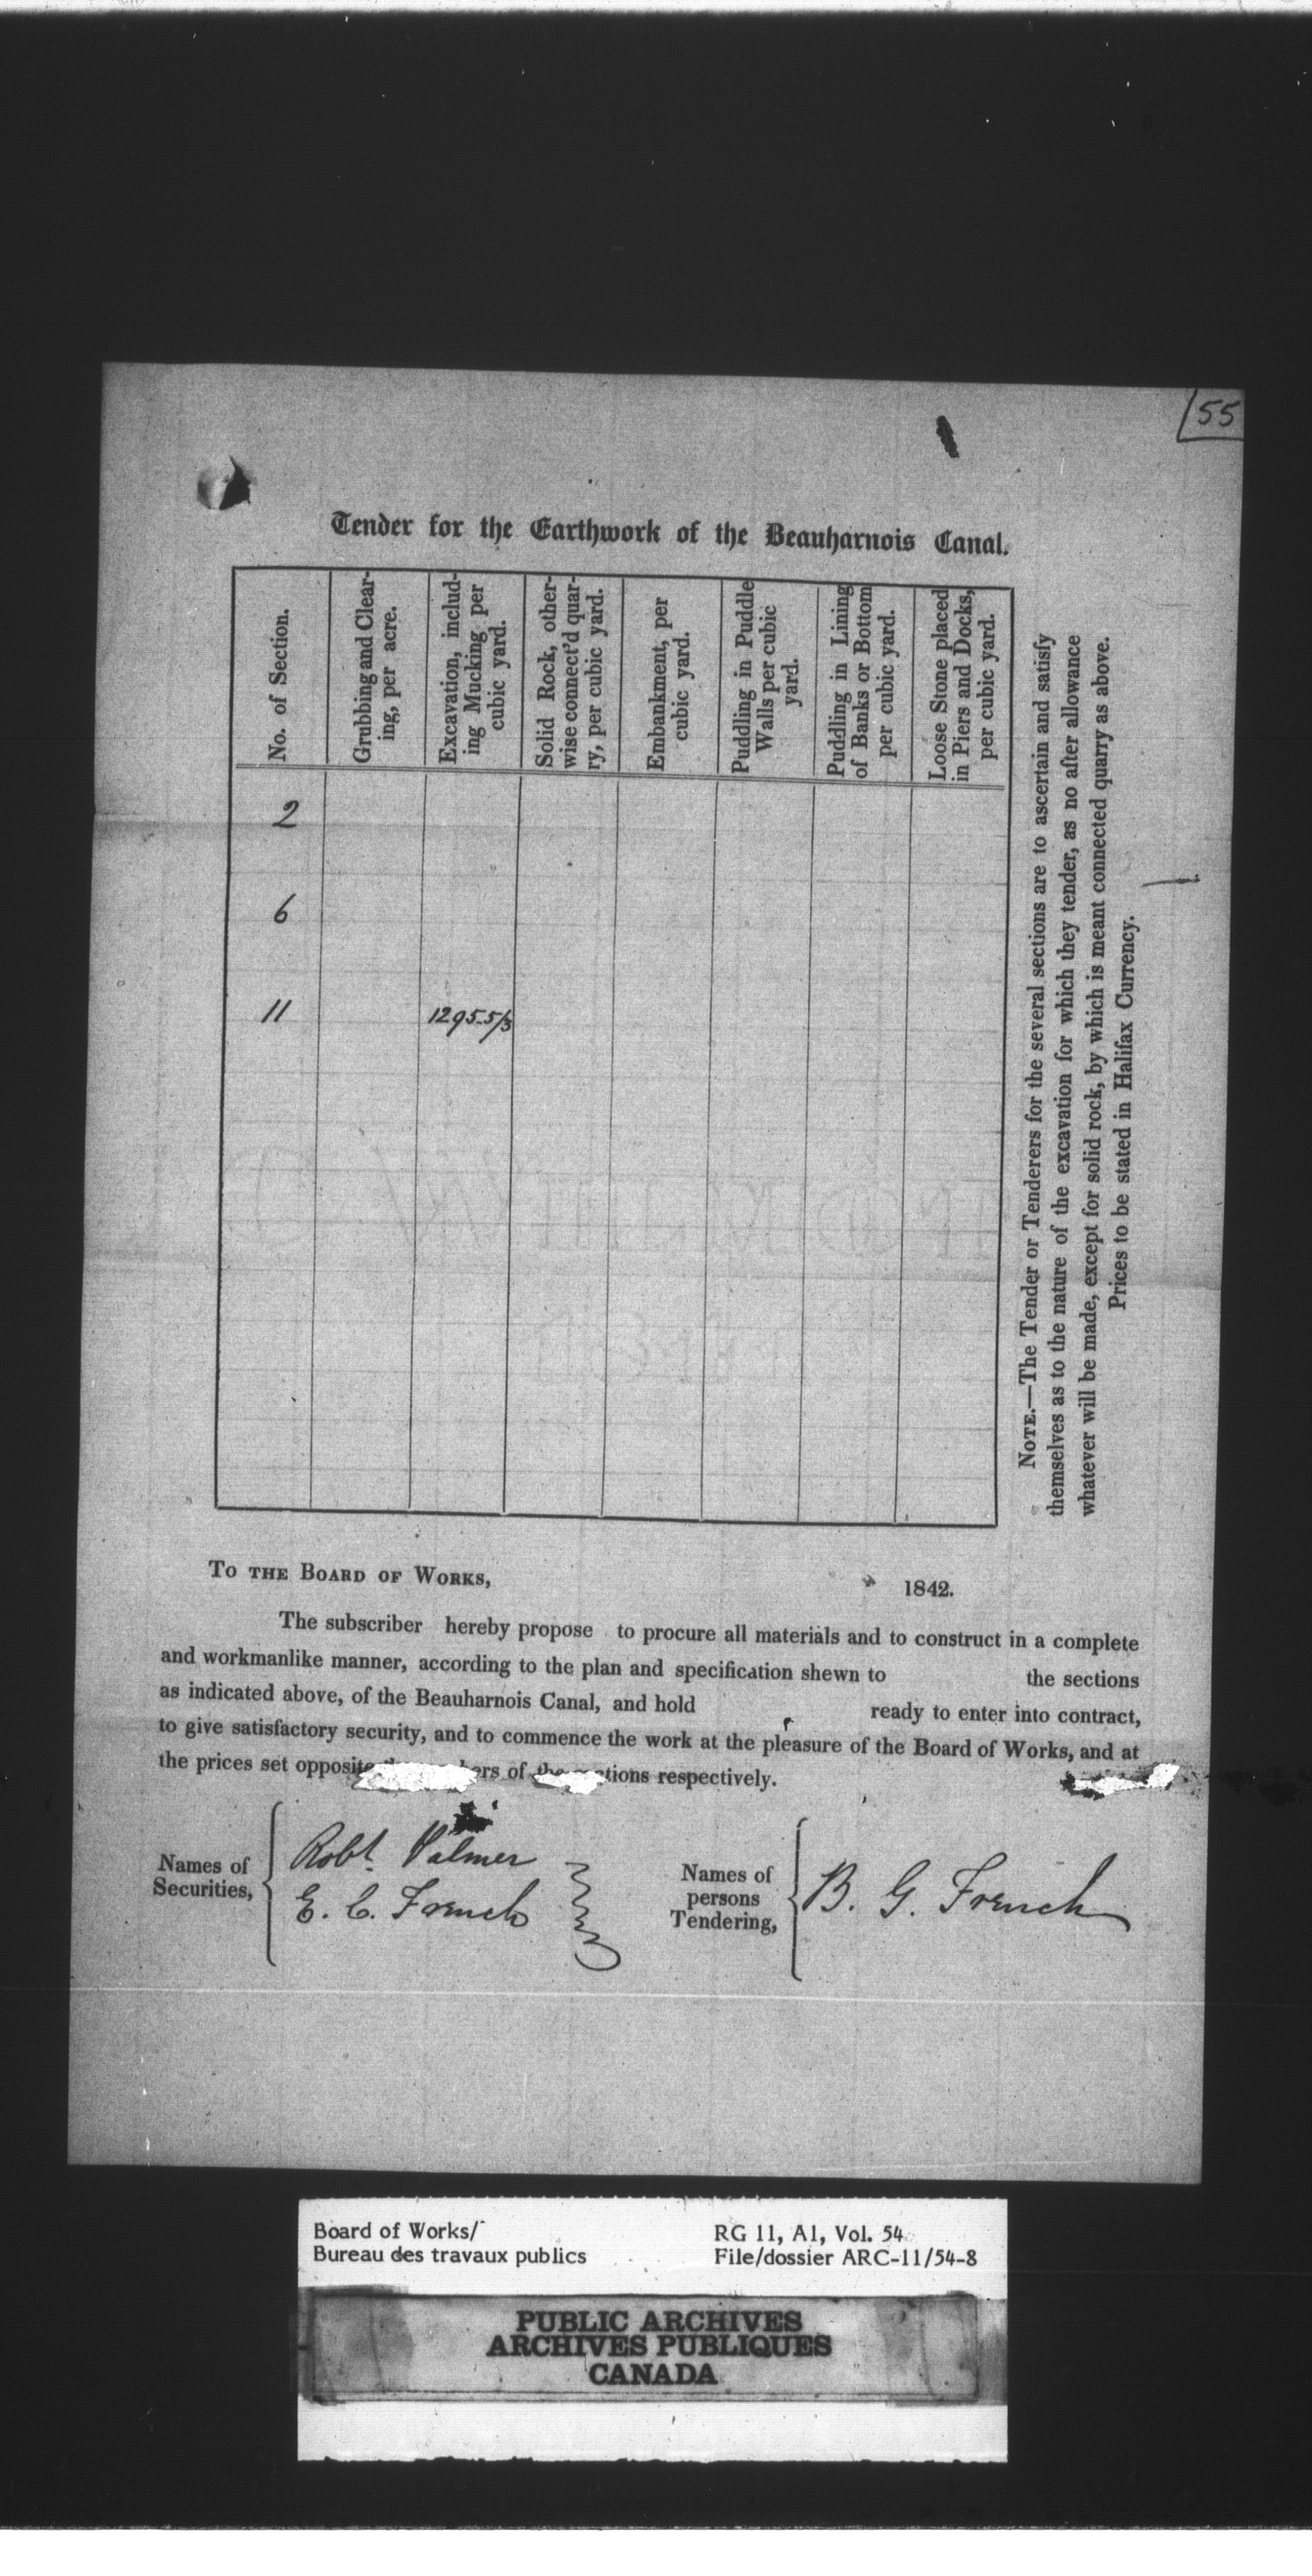 55
Tender for the Earthwork of the Beauharnois Canal.
No. of Section.
Grubbing and Clear-
ing, per acre.
Excavation, includ-
ing Mucking per
cubic yard.
Solid Rock, other-
wise connect'd quar-
ry, per cubic yard.
Embankment, per
cubic yard.
Puddling in Puddle
Walls per cubic
yard.
Puddling in Lining
of Banks or Bottom
per cubic yard.
Loose Stone placed
in Piers and Docks,
per cubic yard.
2
6
11
NOTE.—The Tender or Tenderers for the several sections are to ascertain and satisfy
themselves as to the nature of the excavation for which they tender, as no after allowance
whatever will be made, except for solid rock, by which is meant connected quarry as above.
Prices to be stated in Halifax Currency.
TO THE BOARD OF WORKS,
1842.
The subscriber hereby propose to procure all materials and to construct in a complete
and workmanlike manner, according to the plan and specification shewn to the sections
as indicated above, of the Beauharnois Canal, and hold ready to enter into contract,
to give satisfactory security, and to commence the work at the pleasure of the Board of Works, and at
the prices set opposite of the respectively.
Names of
Securities,
Robt. Palmer
E. C. French
Names of
persons
Tendering,
B. G. French
Board of Works/
Bureau des travaux publics
RG 11, A1, Vol. 54
File/dossier ARC-11/54-8
PUBLIC ARCHIVES
ARCHIVES PUBLIQUES
CANADA